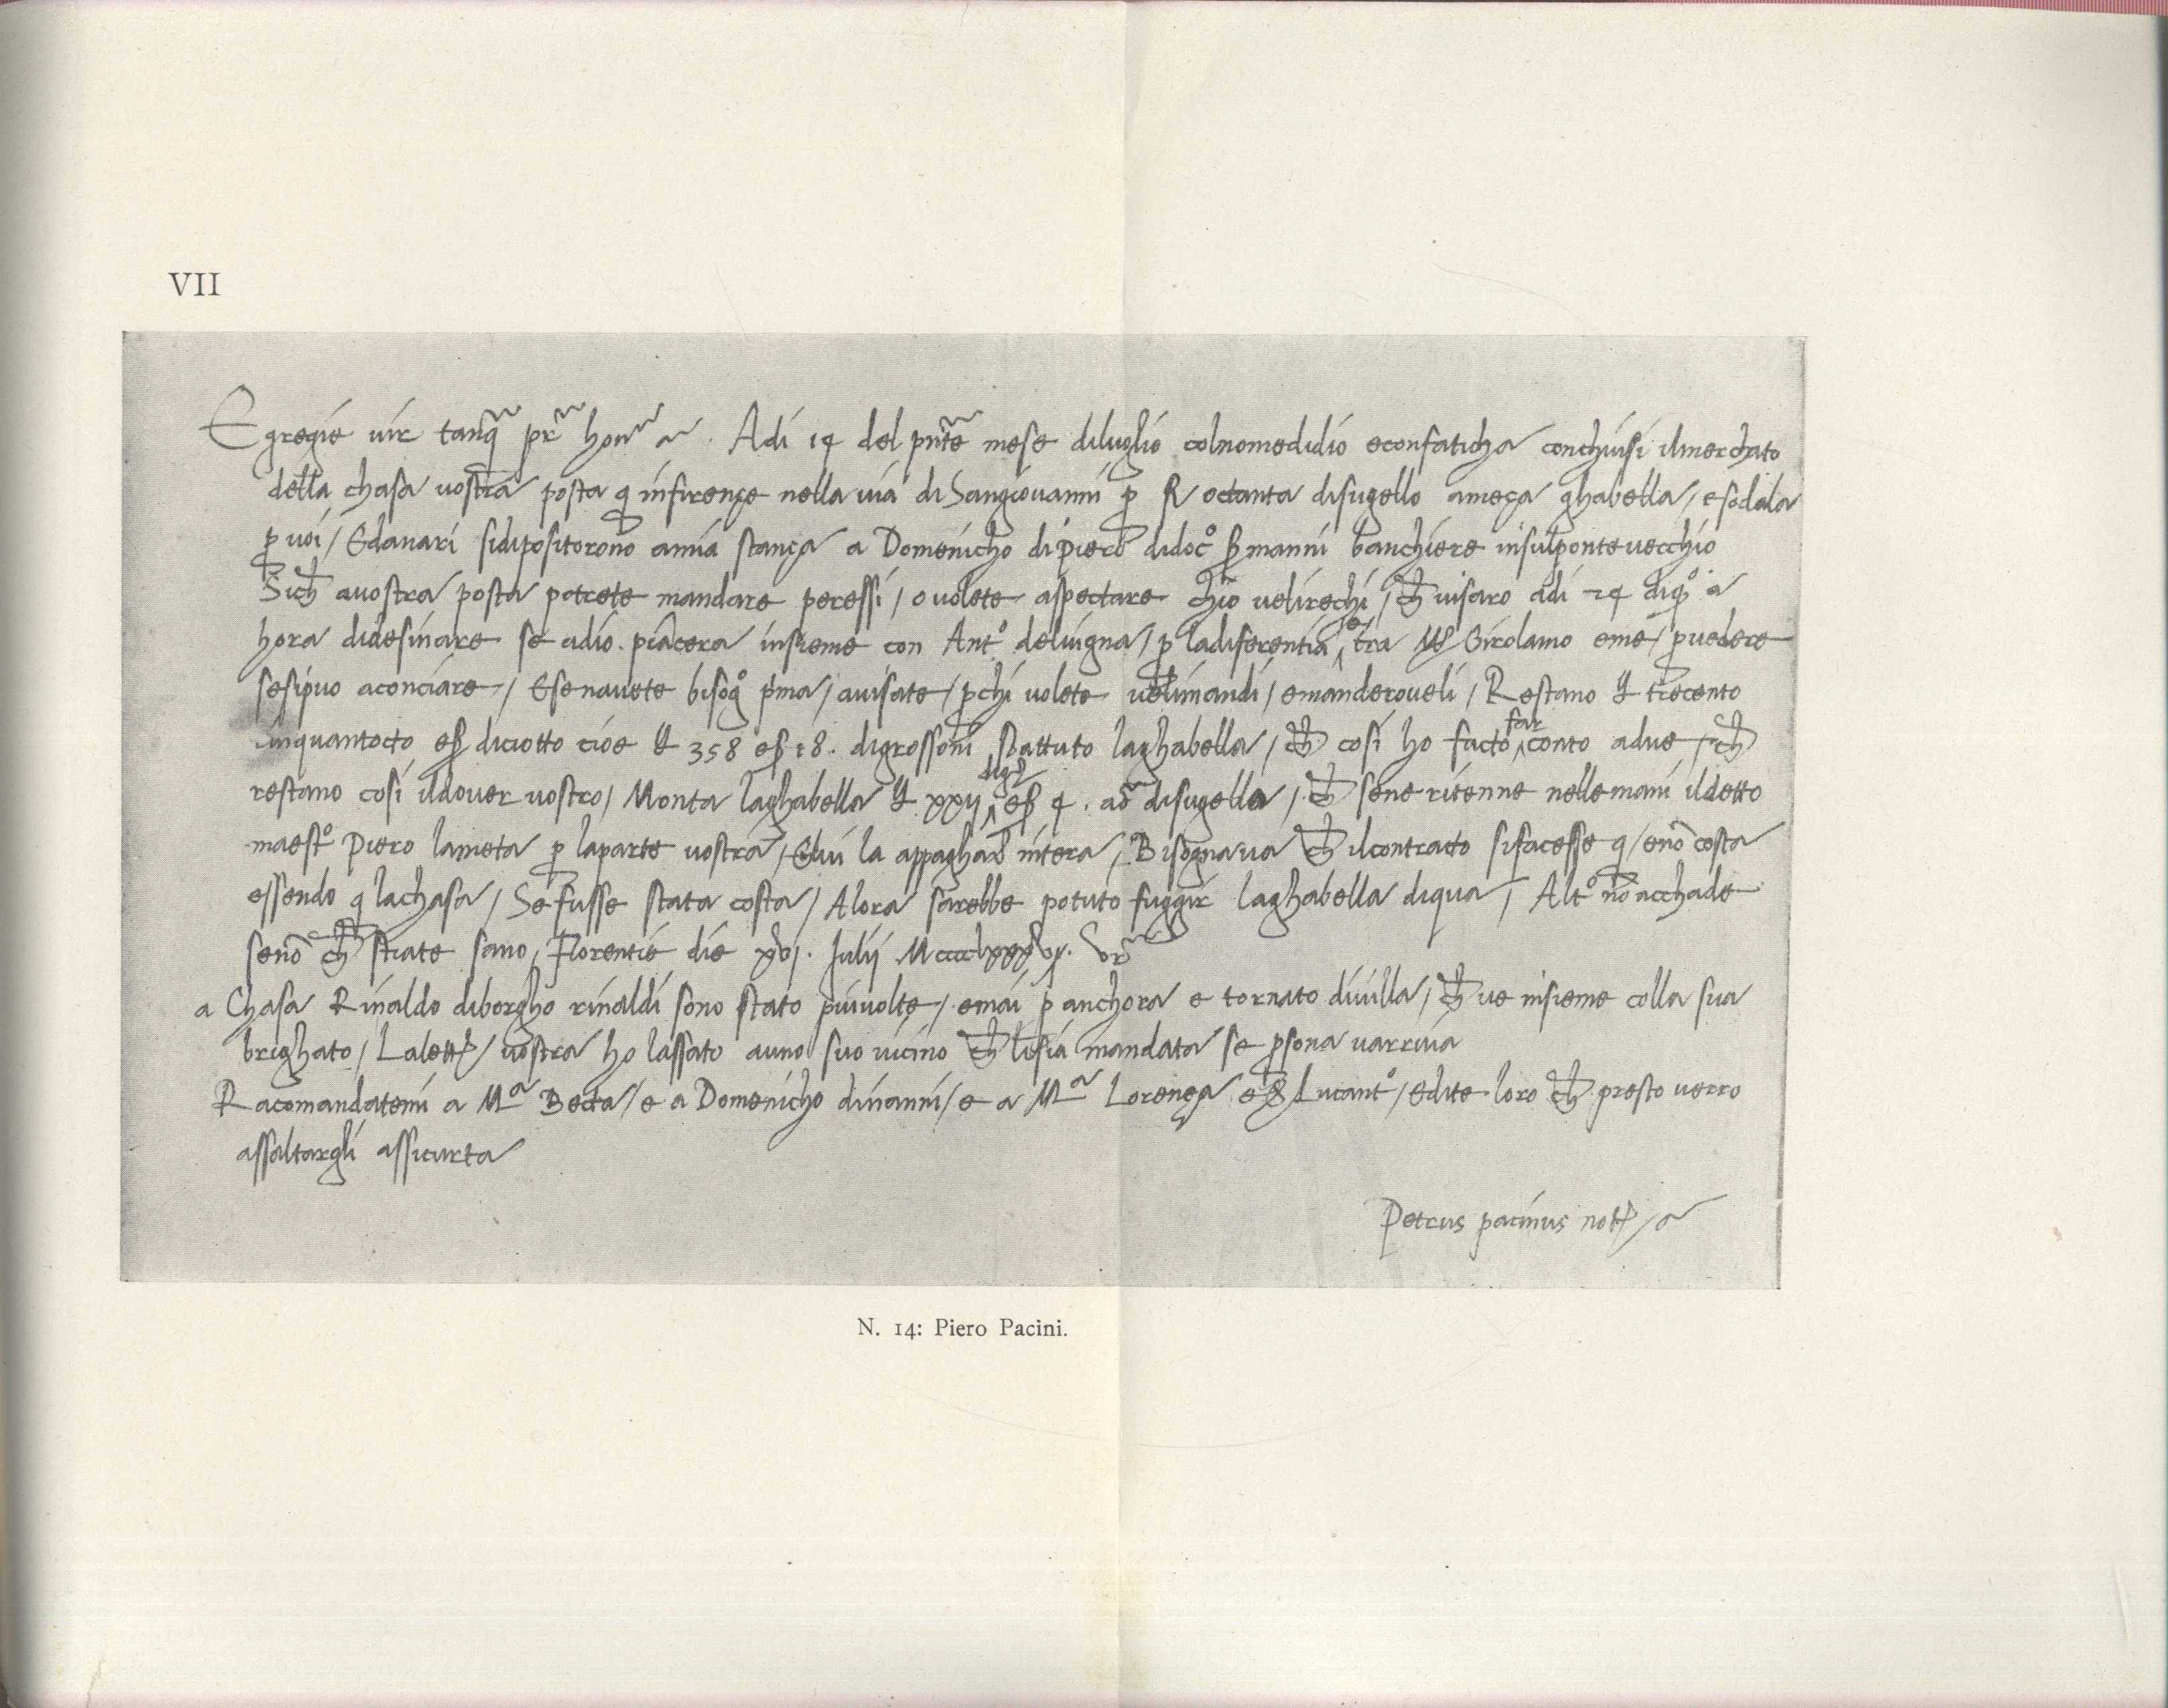 VII
Egregie vir tanq̃ pr̃ hon. Adi 14 del pñte mese diluglio colnomedidio econfaticha conchiusi ilmerchato
della chasa vostra posta q infirençe nella via diSangiovanni p octanta disugello ameça ghabella / esodala
p voi / Edanari sidipositorono amia stança a Domenicho dipiero didoc° manni banchiere insulpontevecchio
Sich avostra posta potrete mandare peressi / o volete aspectare chio velirechi / ch visaro adi 24 diq° a
hora didesinare se adio piacera insieme con Ant° delvigna / p ladiferentia e tra Girolamo eme / pvedere
sesipuo aconciare / Esenavete bisog° pima / avisate / pchi volete velimandi / emanderoveli / Restano trecento
inquantocto diciotto cioe 358 18. digrossoni sbattuto laghabella / ch cosi ho facto far conto adue / ch
restano cosi ildover vostro / Monta laghabella xxii 4. disugello / ch sene ritenne nellemani ildetto
maest° Piero lameta p laparte vostra / Elui la appagharõ intera / Bisognava ch ilcontracto sifacesse q / enõ costa
essendo q lachasa / Se fusse stata costa / Alora sarebbe potuto fuggir laghabella diqua / Alt° nõ acchade
senõ ch stiate sano / Florentie die xvj. Julij Vr̃
a Chasa Rinaldo diborgho rinaldi sono stato piuvolte / emai p anchora e tornato divilla / ch ve insieme colla sua
brighato / vostra ho lassato auno suo vicino ch lisia mandata se psona varriva
Racomandatemi a Mª Becta / e a Domenicho dinanni / e a Mª Lorença Lucant° / edite loro ch presto verro
assaltargli assicurta
Petrus pacinus
N. 14: Piero Pacini.